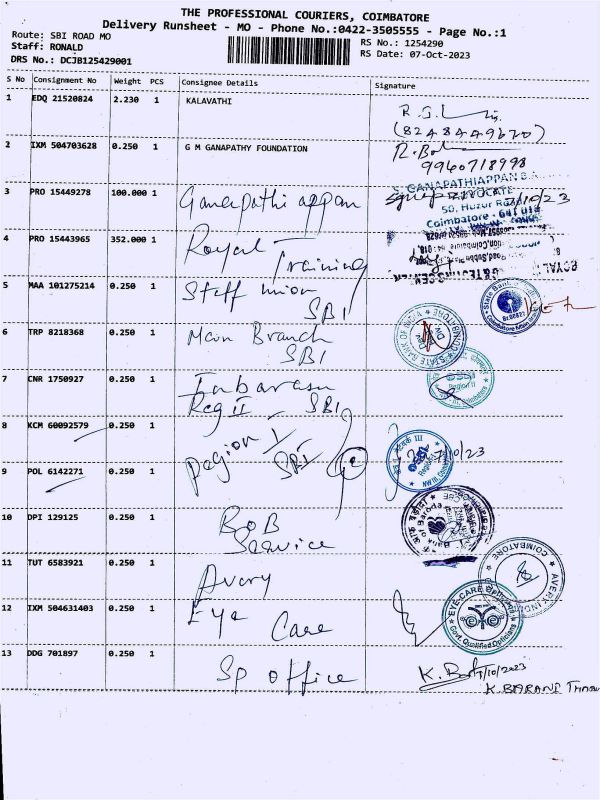 THE PROFESSIONAL COURIERS, COIMBATORE
Delivery Runsheet - MO - Phone No.:0422-3505555 - Page No.:1
Route: SBI ROAD MO
RS No.: 1254290
Staff: RONALD
RS Date: 07-Oct-2023
DRS No.: DCJB125429001
S No Consignment No Weight PCS Consignee Details Signature
1 EDQ 21520824 2.230 1 KALAVATHI
(8248449670)
2 IXM 504703628 0.250 1 G M GANAPATHY FOUNDATION
9960718998
3 PRO 15449278 100.000 1 Ganapathi appan
S. GANAPATHIAPPAN B.A
ADVOCATE
50, Huzur Road
Coimbatore - 641 018
4 PRO 15443965 352.000 1 Royal Training
5 MAA 101275214 0.250 1 Staff Union SBI
6 TRP 8218368 0.250 1 Main Branch SBI
7 CNR 1750927 0.250 1 Inbarasu
Reg II - SBI
8 KCM 60092579 0.250 1 Region 1
SBI
9 POL 6142271 0.250 1
10 DPI 129125 0.250 1 BOB
Service
Bank of Baroda
11 TUT 6583921 0.250 1 Avery
COIMBATORE
12 IXM 504631403 0.250 1 Eye Care
EYE CARE Opticals
Govt. Qualified Opticians
13 DDG 701897 0.250 1 Sp office
7/10/2023